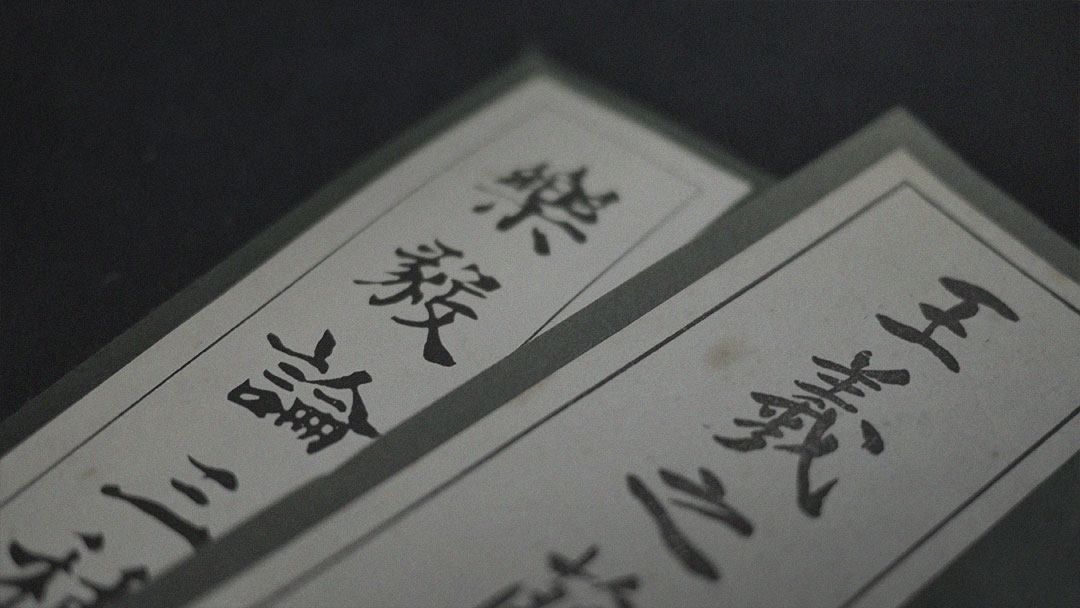 樂毅論三種
王羲之